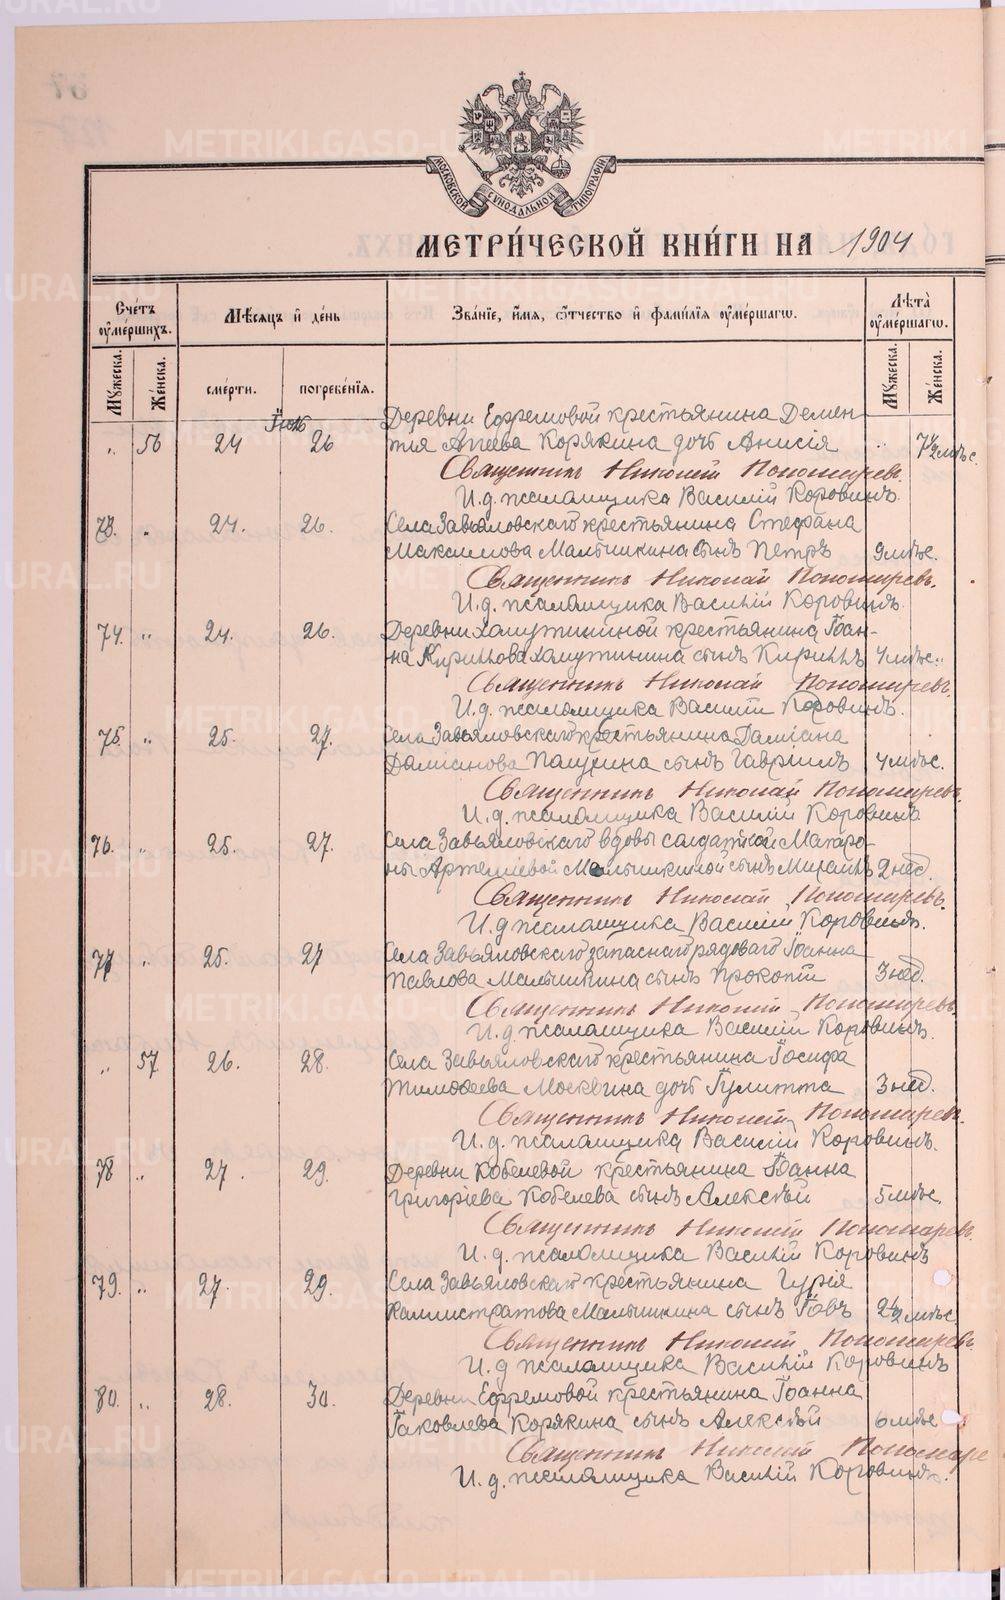 МОСКОВСКОЙ СѴНОДАЛЬНОЙ ТИПОГРАФІИ
МЕТРИ́ЧЕСКОЙ КНИ́ГИ НА 1904
Сче́тъ ᲂуме́ршихъ.
Мѣ́сяцъ и҆ де́нь
Зва́нїе, и҆́мя, ѻ҆́тчество и҆ фами́лїя ᲂуме́ршагѡ.
Лѣта̀ ᲂуме́ршагѡ.
Мꙋ́жеска.
Же́нска.
сме́рти.
погребе́нїя.
Мꙋ́жеска.
Же́нска.
Іюль
Деревни Ефремовой крестьянина Демен-
„ 56 24 26 тія Корякина дочь Анисія „ 7½ мѣс.
Священникъ Николай Пономаревъ.
И.д. псаломщика Василій Коровинъ.
73. „ 24. 26. Села Завьяловскаго крестьянина Стефана
Максимова Малышкина сынъ Петръ 9 мѣс.
Священникъ Николай Пономаревъ.
И.д. псаломщика Василій Коровинъ.
74. „ 24. 26. Деревни Халутининой крестьянина Іоан-
на Кириллова Халутинина сынъ Кириллъ 4 мѣс. „
Священникъ Николай Пономаревъ.
И.д. псаломщика Василій Коровинъ.
75. „ 25. 27. Села Завьяловскаго крестьянина Даміана
Даміанова сынъ Гавріилъ 4 мѣс.
Священникъ Николай Пономаревъ.
И.д. псаломщика Василій Коровинъ
76. „ 25. 27. Села Завьяловскаго вдовы солдатской Матро-
ны Артеміевой Малышкиной сынъ Михаилъ 2 нед.
Священникъ Николай Пономаревъ.
И.д. псаломщика Василій Коровинъ.
77 „ 25. 27 Села Завьяловскаго запаснаго рядоваго Іоанна
Павлова Малышкина сынъ Прокопій 3 нед.
Священникъ Николай Пономаревъ.
И.д. псаломщика Василій Коровинъ.
„ 57 26. 28. Села Завьяловскаго крестьянина Іосифа
Тимоѳеева Москвина дочь Іулитта 3 нед.
Священникъ Николай Пономаревъ.
И.д. псаломщика Василій Коровинъ.
78 „ 27. 29. Деревни Кобелевой крестьянина Іоанна
Григоріева Кобелева сынъ Алексѣй 5 мѣс.
Священникъ Николай Пономаревъ.
И.д. псаломщика Василій Коровинъ
79. „ 27. 29. Села Завьяловскаго крестьянина Гурія
Каллистратова Малышкина сынъ Іовъ 2½ мѣс.
Священникъ Николай Пономаревъ
И.д псаломщика Василій Коровинъ
80. „ 28. 30. Деревни Ефремовой крестьянина Іоанна
Іаковлева Корякина сынъ Алексѣй 6 мѣс
Священникъ Николай Пономаре
И.д. псаломщика Василій Коровинъ.
METRIKI.GASO-URAL.RU